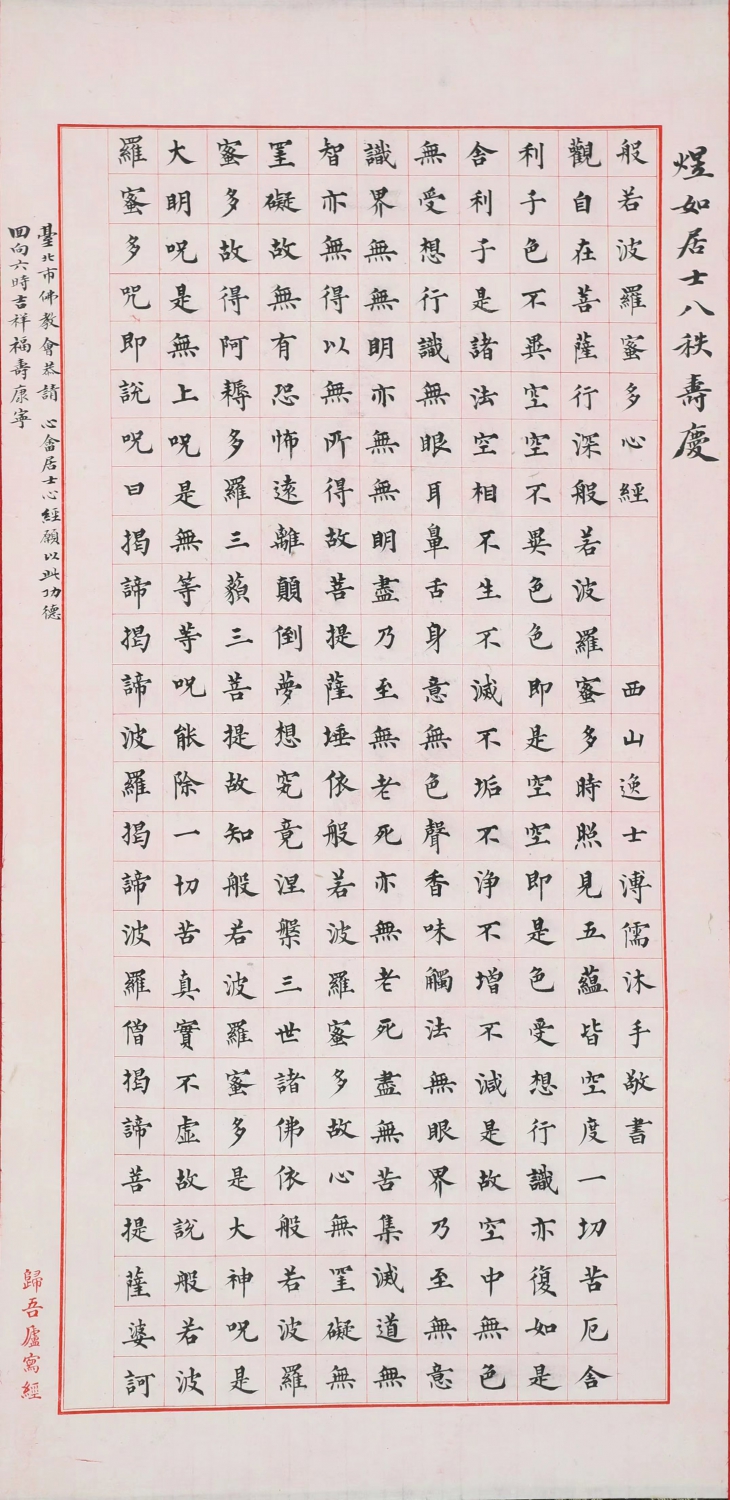 煜如居士八秩壽慶
般若波羅蜜多心經 西山逸士溥儒沐手敬書
觀自在菩薩行深般若波羅蜜多時照見五蘊皆空度一切苦厄舍
利子色不異空空不異色色即是空空即是色受想行識亦復如是
舍利子是諸法空相不生不滅不垢不淨不增不減是故空中無色
無受想行識無眼耳鼻舌身意無色聲香味觸法無眼界乃至無意
識界無無明亦無無明盡乃至無老死亦無老死盡無苦集滅道無
智亦無得以無所得故菩提薩埵依般若波羅蜜多故心無罣礙無
罣礙故無有恐怖遠離顛倒夢想究竟涅槃三世諸佛依般若波羅
蜜多故得阿耨多羅三藐三菩提故知般若波羅蜜多是大神呪是
大明呪是無上呪是無等等呪能除一切苦真實不虛故說般若波
羅蜜多咒即說呪曰揭諦揭諦波羅揭諦波羅僧揭諦菩提薩婆訶
臺北市佛教會恭請 心畬居士心經願以此功德
回向六時吉祥福壽康寧
歸吾廬寫經